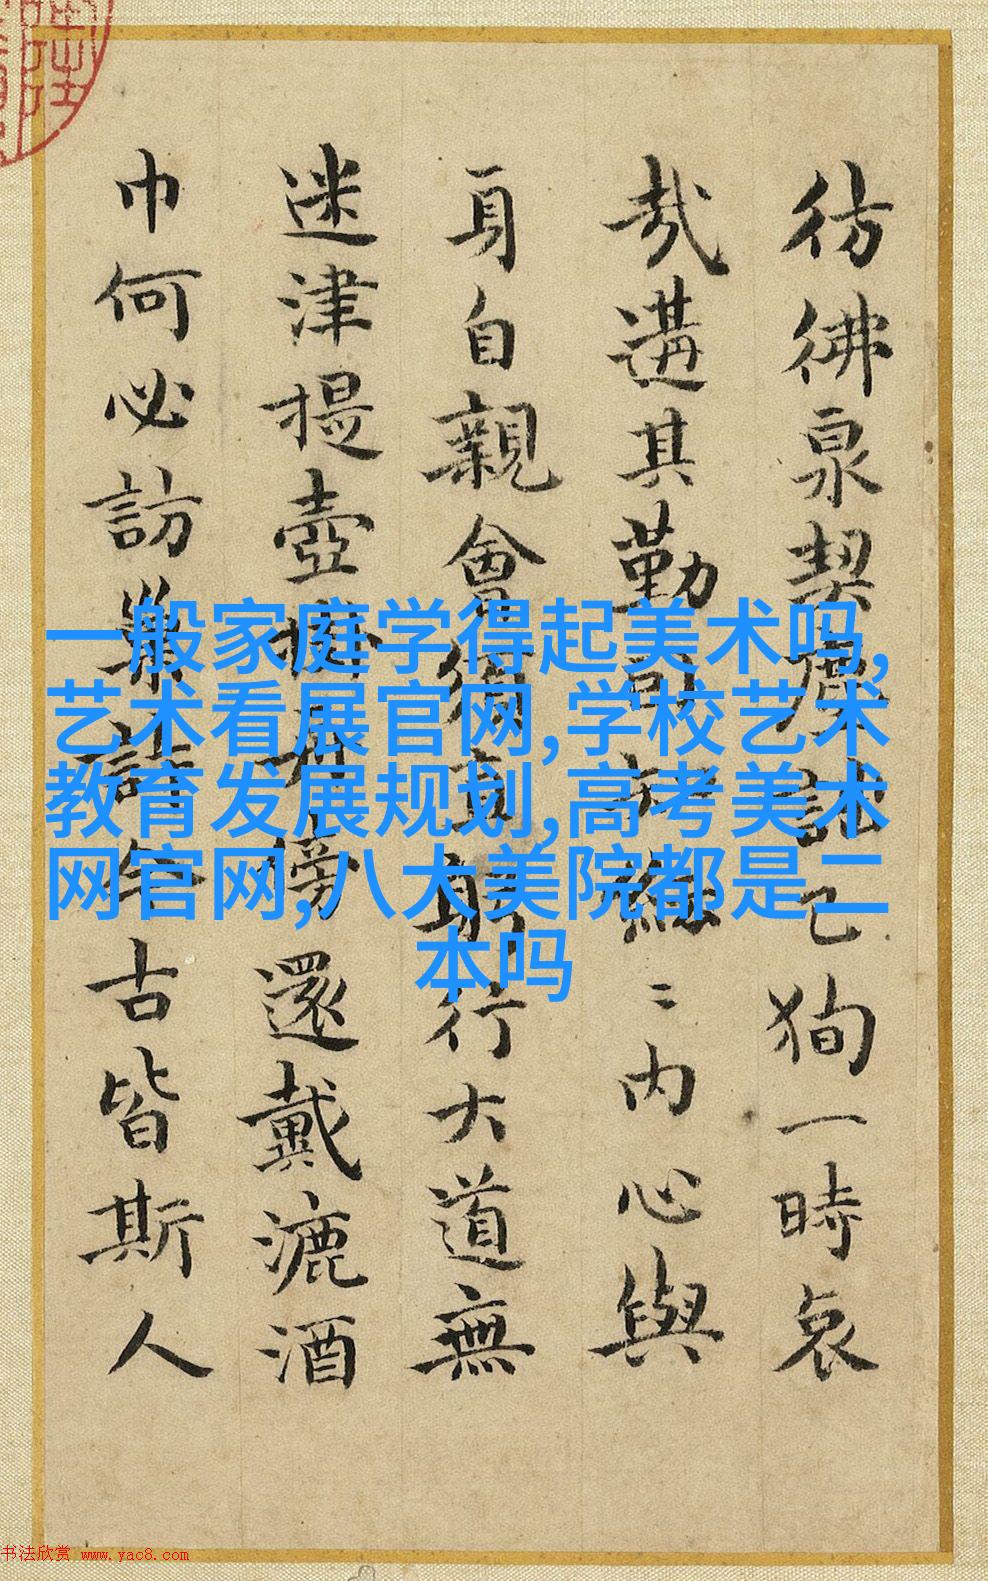 彷彿泉契託己狥一時哀
哉遘其勤〻内心與
身自親會躬行大道無
迷津提壺傍還戴漉酒
巾何必訪巢古皆斯人
一般家庭学得起美术吗,
艺术看展官网,学校艺术
教育发展规划,高考美术
网官网,八大美院都是二
本吗
书法欣赏 www.yac8.com